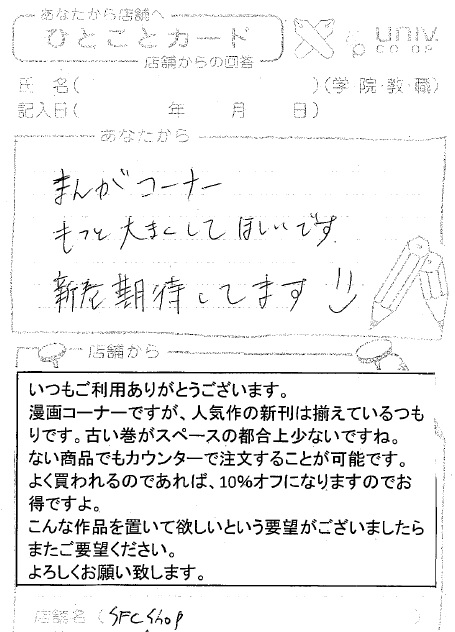 あなたから店舗へ
ひとことカード
店舗からの回答
univ.
CO-OP
氏 名( )(学・院・教・職)
記入日( 年 月 日)
あなたから
まんがコーナー
もっと大きくしてほしいです
新巻期待してます
店舗から
いつもご利用ありがとうございます。
漫画コーナーですが、人気作の新刊は揃えているつも
りです。古い巻がスペースの都合上少ないですね。
ない商品でもカウンターで注文することが可能です。
よく買われるのであれば、10%オフになりますのでお
得ですよ。
こんな作品を置いて欲しいという要望がございましたら
またご要望ください。
よろしくお願い致します。
店舗名(SFC Shop )